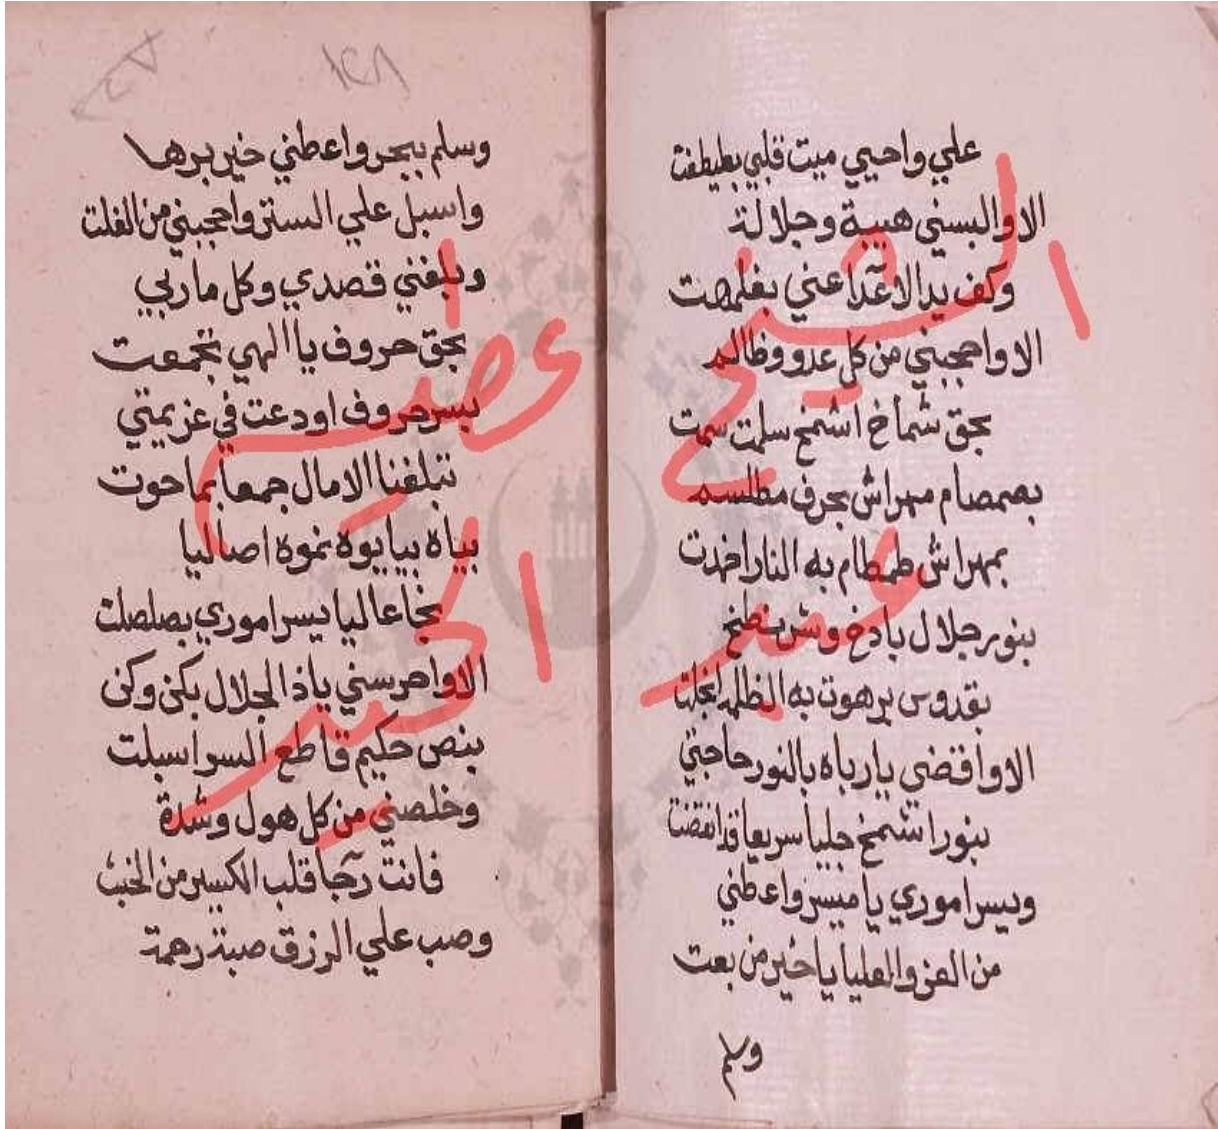 علي واحيي ميت قلبي بطيطفت
الا والبسني هيبة وجلالة
وكف يد الاعدا عني بغلمهت
الا واحجبني من كل عدو وظالم
بحق شماخ اشمخ سلمت سمت
بصمصام مهراش بحرف مطلسم
بمهراش طمطام به النار اخمدت
بنور جلال باذخ وشرنطخ
بقدوس برهوت به الظلمه انجلت
الا واقضي يارباه بالنور حاجتي
بنور اشمخ جليا سريعا قد انقضت
ويسر اموري يا ميسر واعطني
من العز والعليا يا خير من بعت
وسلم
١٤٨
وسلم ببحر واعطني خير برها
واسبل علي الستر واحجبني من الغلت
وبلغني قصدي وكل ماربي
بحق حروف يا الهي تجمعت
بسر حروف اودعت في عزيمتي
تبلغنا الامال جمعا بما حوت
بياه بيايوه نموه اصاليا
بخاعاليا يسر اموري بصلصلت
الا واحرسني ياذا الجلال بكن وكن
بنص حكيم قاطع السر اسبلت
وخلصني من كل هول وشدة
فانت رجا قلب الكسير من الخبت
وصب علي الرزق صبة رحمة
الشيخ
عبد